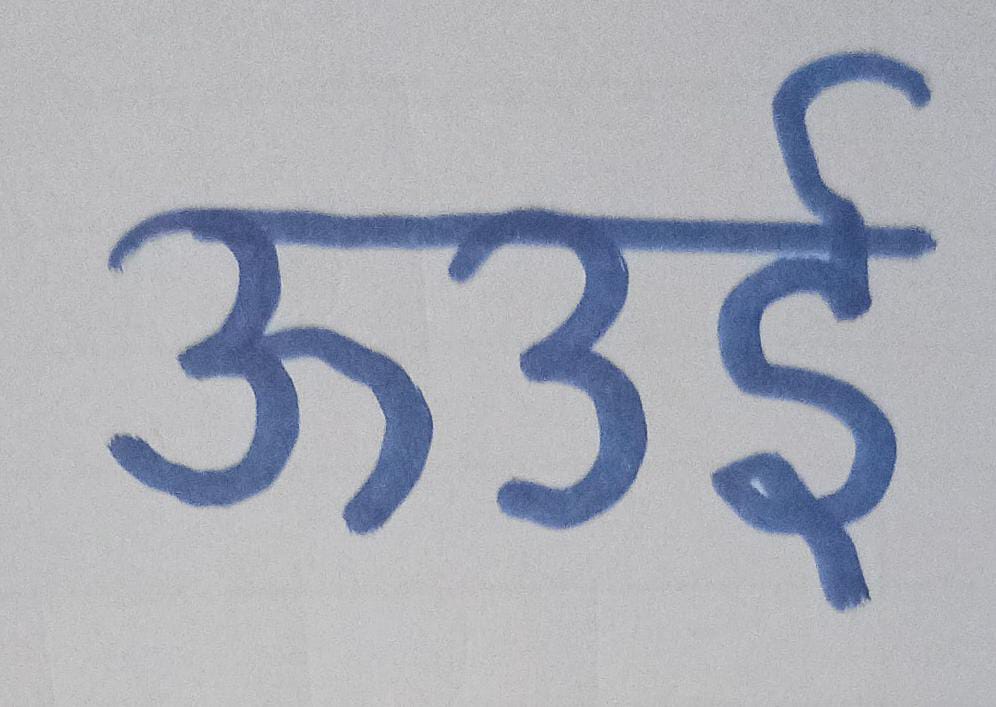 ऊउई